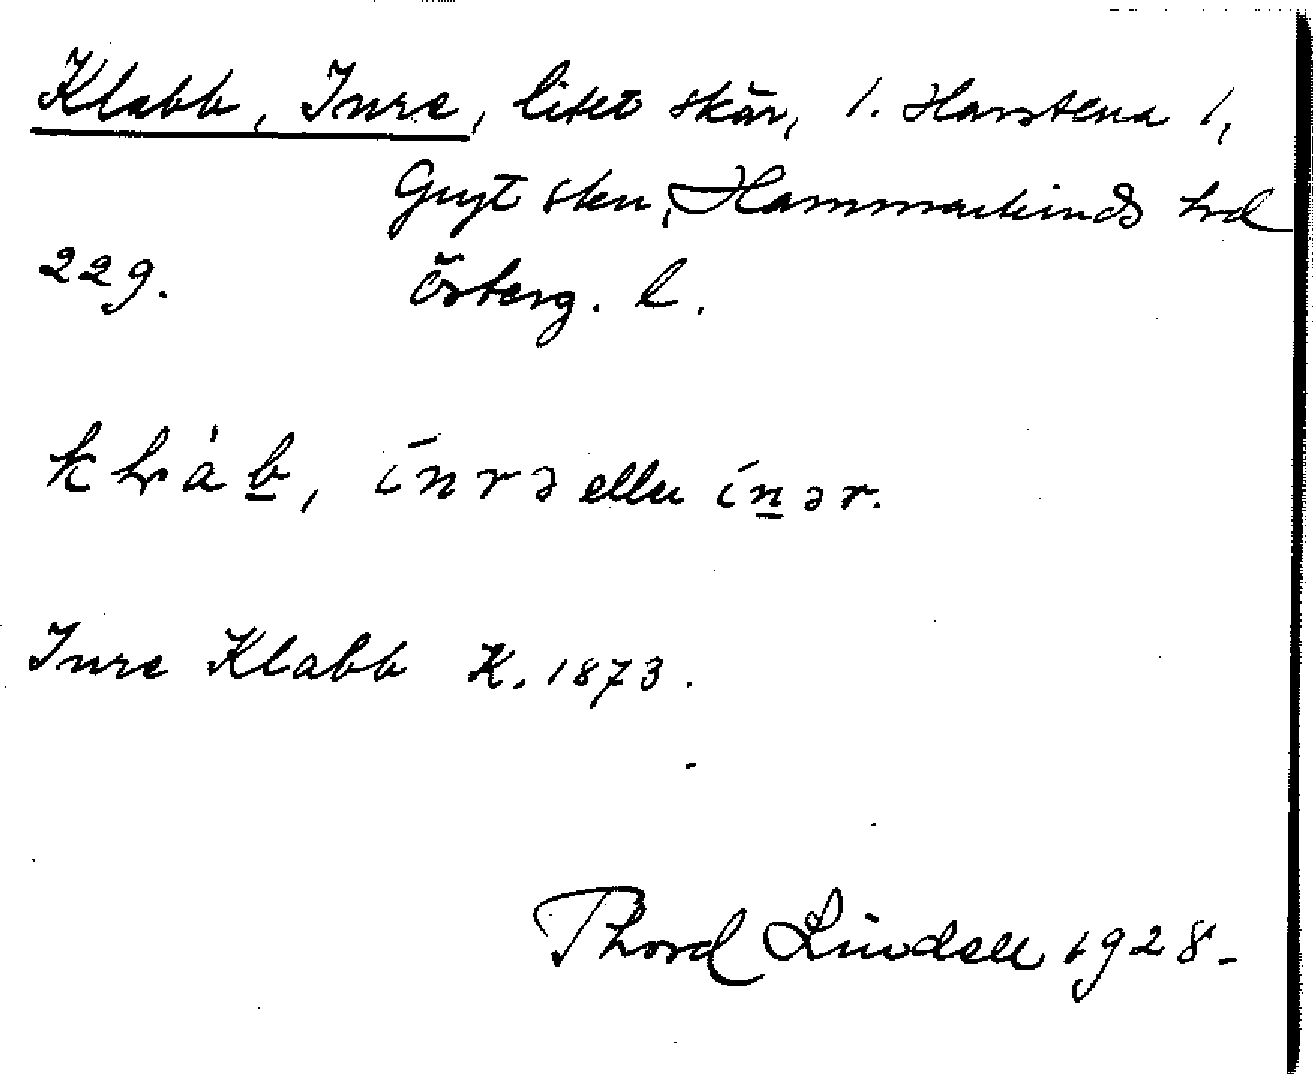 Klabb, Inre, litet skär, 1. Harstena 1,
Gryt skn, Hammarkinds hrd
229. Österg. l.
klàb, ínrə eller ínər.
Inre Klabb K. 1873.
Thord Lindell 1928.